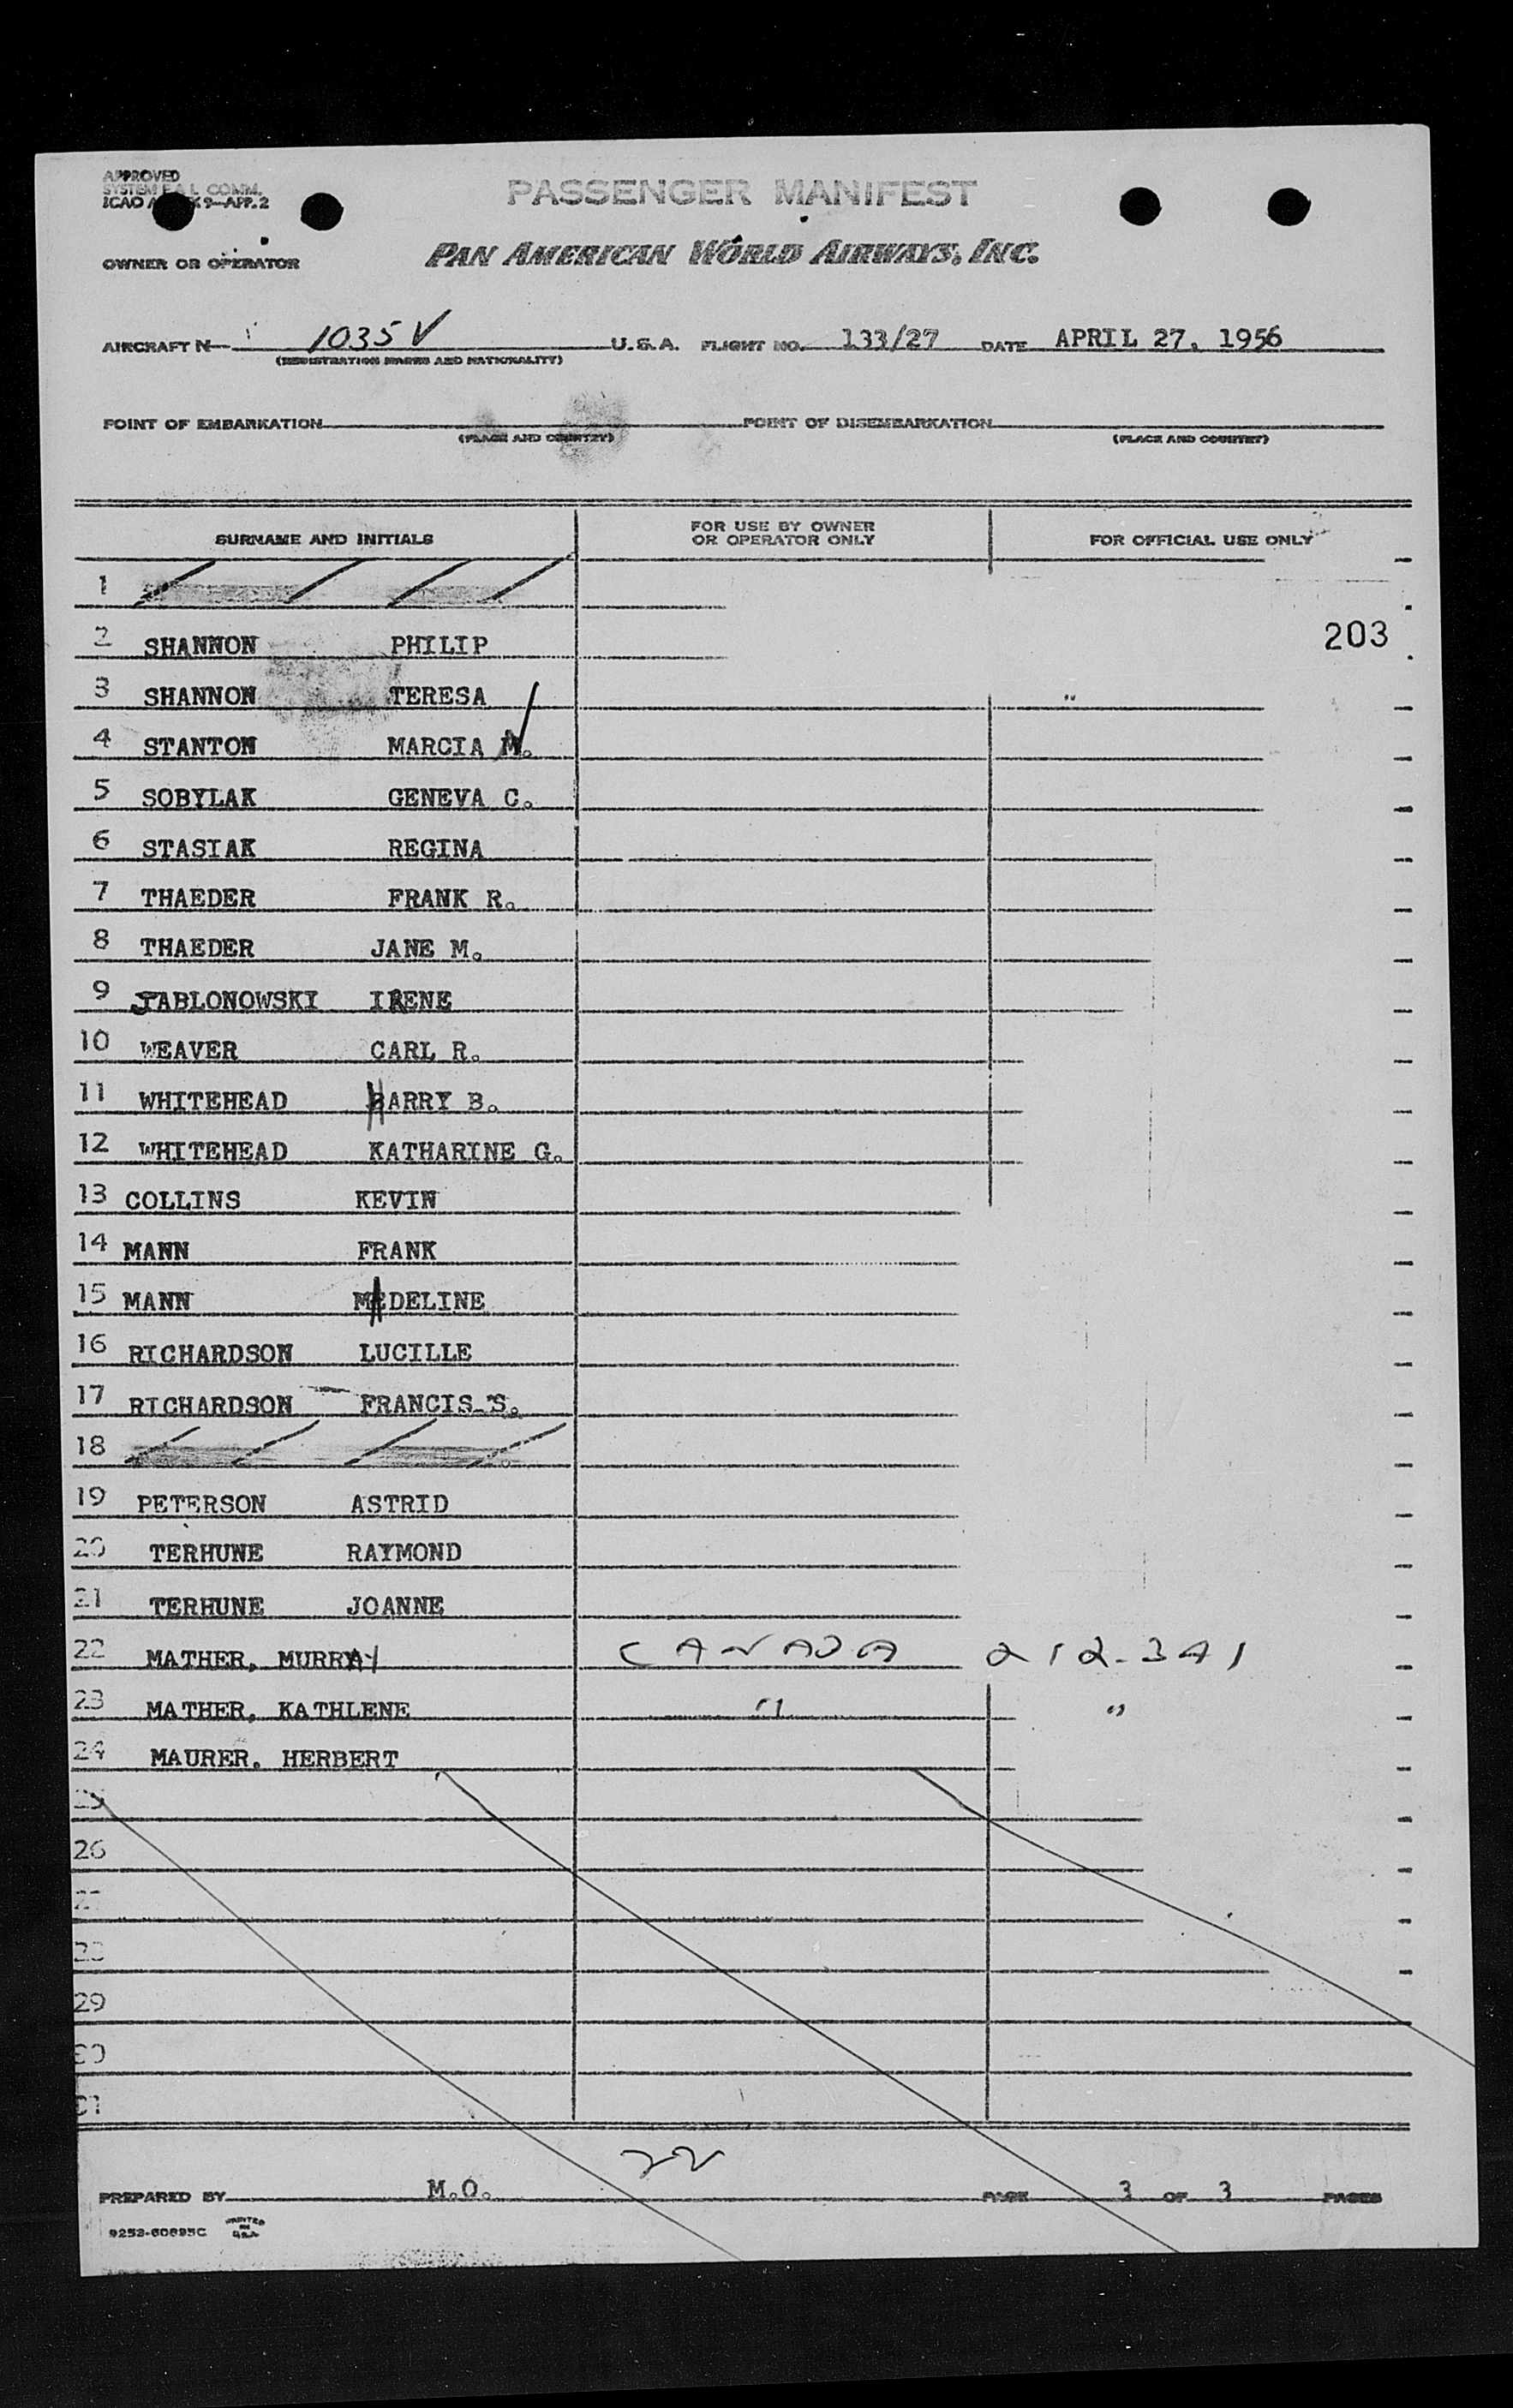 APPROVED
SYSTEM F.A.L. COMM.
ICAO 9—APP. 2
PASSENGER MANIFEST
OWNER OR OPERATOR PAN AMERICAN WORLD AIRWAYS, INC.
AIRCRAFT N- 1035V U.S.A. FLIGHT NO. 133/27 DATE APRIL 27, 1956
(REGISTRATION MARKS AND NATIONALITY)
POINT OF EMBARKATION POINT OF DISEMBARKATION
(PLACE AND COUNTRY) (PLACE AND COUNTRY)
SURNAME AND INITIALS FOR USE BY OWNER OR OPERATOR ONLY FOR OFFICIAL USE ONLY
1
2 SHANNON PHILIP 203
3 SHANNON TERESA "
4 STANTON MARCIA M.
5 SOBYLAK GENEVA C.
6 STASIAK REGINA
7 THAEDER FRANK R.
8 THAEDER JANE M.
9 JABLONOWSKI IRENE
10 WEAVER CARL R.
11 WHITEHEAD HARRY B.
12 WHITEHEAD KATHARINE G.
13 COLLINS KEVIN
14 MANN FRANK
15 MANN MADELINE
16 RICHARDSON LUCILLE
17 RICHARDSON FRANCIS S.
18
19 PETERSON ASTRID
20 TERHUNE RAYMOND
21 TERHUNE JOANNE
22 MATHER, MURRAY CANADA 212-341
23 MATHER, KATHLENE " "
24 MAURER, HERBERT
25
26
27
28
29
30
31
22
PREPARED BY M.O. PAGE 3 OF 3 PAGES
9253-60895C PRINTED IN U.S.A.